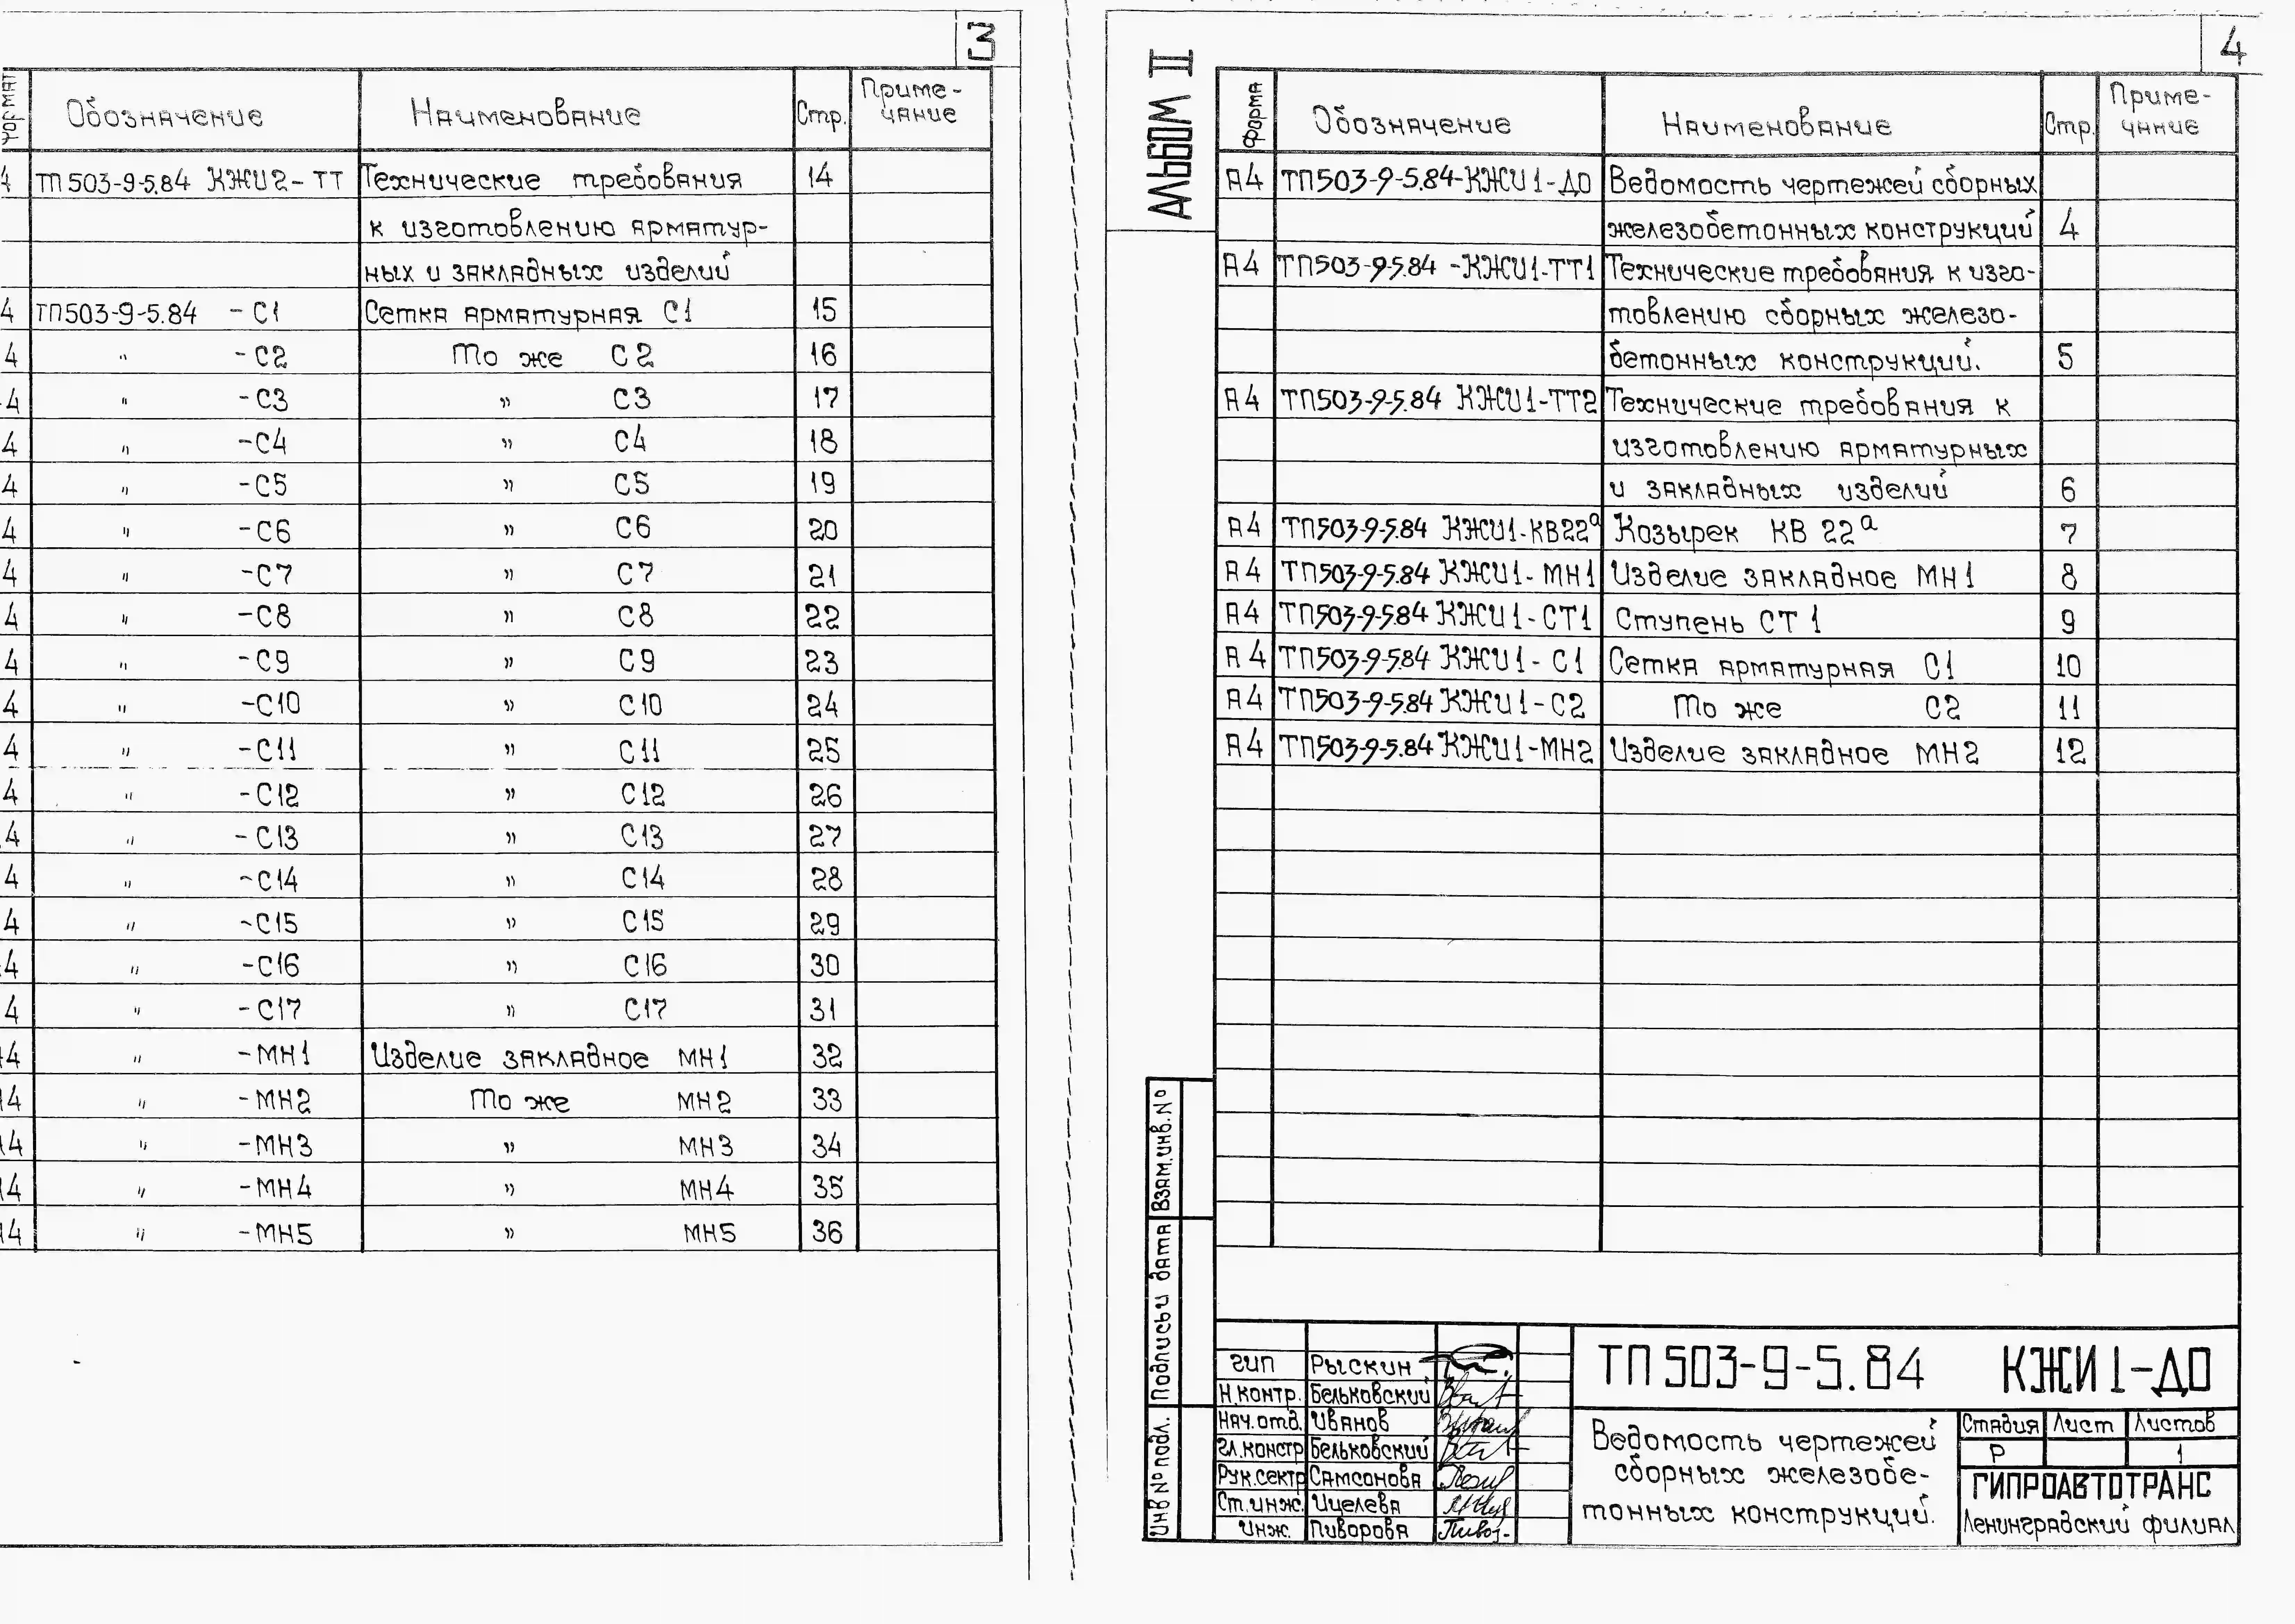 3
Формат Обозначение Наименование Стр. Приме-
чание
4 ТП503-9-5.84 КЖИ2-ТТ Технические требования 14
к изготовлению арматур-
ных и закладных изделий
4 ТП503-9-5.84 -С1 Сетка арматурная С1 15
4 " -С2 То же С2 16
4 " -С3 " С3 17
4 " -С4 " С4 18
4 " -С5 " С5 19
4 " -С6 " С6 20
4 " -С7 " С7 21
4 " -С8 " С8 22
4 " -С9 " С9 23
4 " -С10 " С10 24
4 " -С11 " С11 25
4 " -С12 " С12 26
4 " -С13 " С13 27
4 " -С14 " С14 28
4 " -С15 " С15 29
4 " -С16 " С16 30
4 " -С17 " С17 31
4 " -МН1 Изделие закладное МН1 32
4 " -МН2 То же МН2 33
4 " -МН3 " МН3 34
4 " -МН4 " МН4 35
4 " -МН5 " МН5 36
4
Альбом II
Форма Обозначение Наименование Стр. Приме-
чание
А4 ТП503-9-5.84-КЖИ1-ДО Ведомость чертежей сборных
железобетонных конструкций 4
А4 ТП503-9-5.84-КЖИ1-ТТ1 Технические требования к изго-
товлению сборных железо-
бетонных конструкций. 5
А4 ТП503-9-5.84 КЖИ1-ТТ2 Технические требования к
изготовлению арматурных
и закладных изделий 6
А4 ТП503-9-5.84 КЖИ1-КВ22а Козырек КВ 22а 7
А4 ТП503-9-5.84 КЖИ1-МН1 Изделие закладное МН1 8
А4 ТП503-9-5.84 КЖИ1-СТ1 Ступень СТ1 9
А4 ТП503-9-5.84 КЖИ1-С1 Сетка арматурная С1 10
А4 ТП503-9-5.84 КЖИ1-С2 То же С2 11
А4 ТП503-9-5.84 КЖИ1-МН2 Изделие закладное МН2 12
Взам.инв.№
Подпись и дата
Инв№подл.
ГИП Рыскин
Н.контр. Бельковский
Нач.отд. Иванов
Гл.констр Бельковский
Рук.сектр Самсонова
Ст.инж. Ицелева
Инж. Пиворова
ТП 503-9-5.84 КЖИ1-ДО
Ведомость чертежей
сборных железобе-
тонных конструкций.
Стадия Лист Листов
Р 1
ГИПРОАВТОТРАНС
Ленинградский филиал